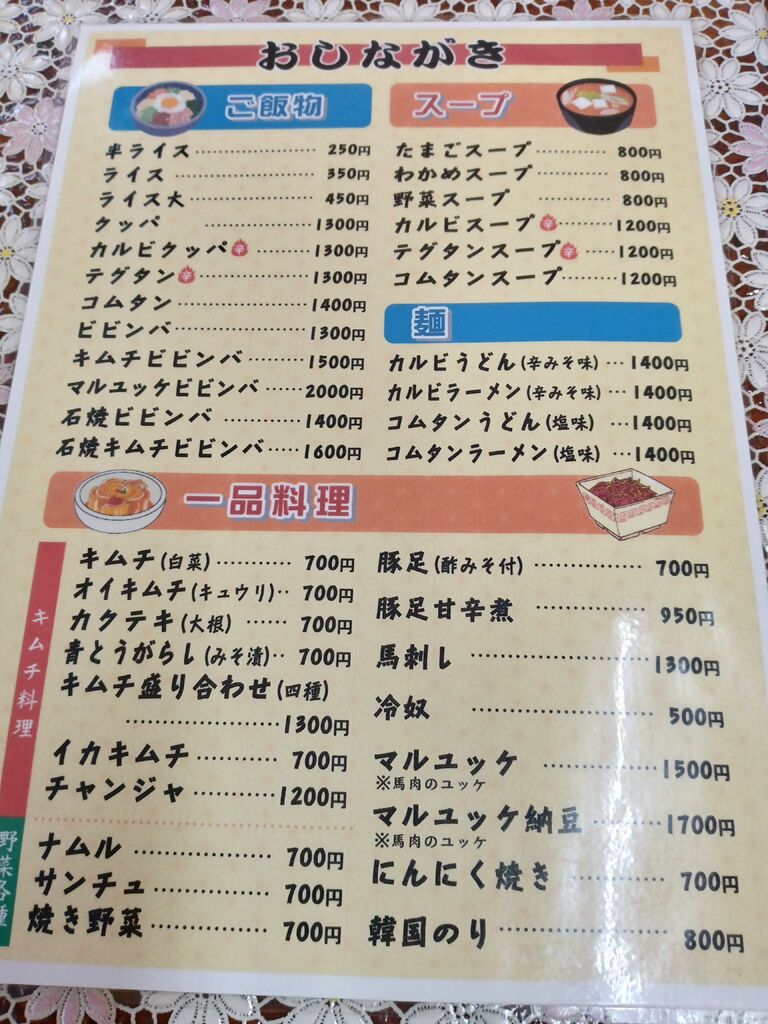 おしながき
ご飯物
半ライス 250円
ライス 350円
ライス大 450円
クッパ 1300円
カルビクッパ 辛 1300円
テグタン 辛 1300円
コムタン 1400円
ビビンバ 1300円
キムチビビンバ 1500円
マルユッケビビンバ 2000円
石焼ビビンバ 1400円
石焼キムチビビンバ 1600円
スープ
たまごスープ 800円
わかめスープ 800円
野菜スープ 800円
カルビスープ 辛 1200円
テグタンスープ 辛 1200円
コムタンスープ 1200円
麺
カルビうどん(辛みそ味) 1400円
カルビラーメン(辛みそ味) 1400円
コムタンうどん(塩味) 1400円
コムタンラーメン(塩味) 1400円
一品料理
キムチ料理
キムチ(白菜) 700円
オイキムチ(キュウリ) 700円
カクテキ(大根) 700円
青とうがらし(みそ漬) 700円
キムチ盛り合わせ(四種)
1300円
イカキムチ 700円
チャンジャ 1200円
野菜各種
ナムル 700円
サンチュ 700円
焼き野菜 700円
豚足(酢みそ付) 700円
豚足甘辛煮 950円
馬刺し 1300円
冷奴 500円
マルユッケ 1500円
※馬肉のユッケ
マルユッケ納豆 1700円
※馬肉のユッケ
にんにく焼き 700円
韓国のり 800円